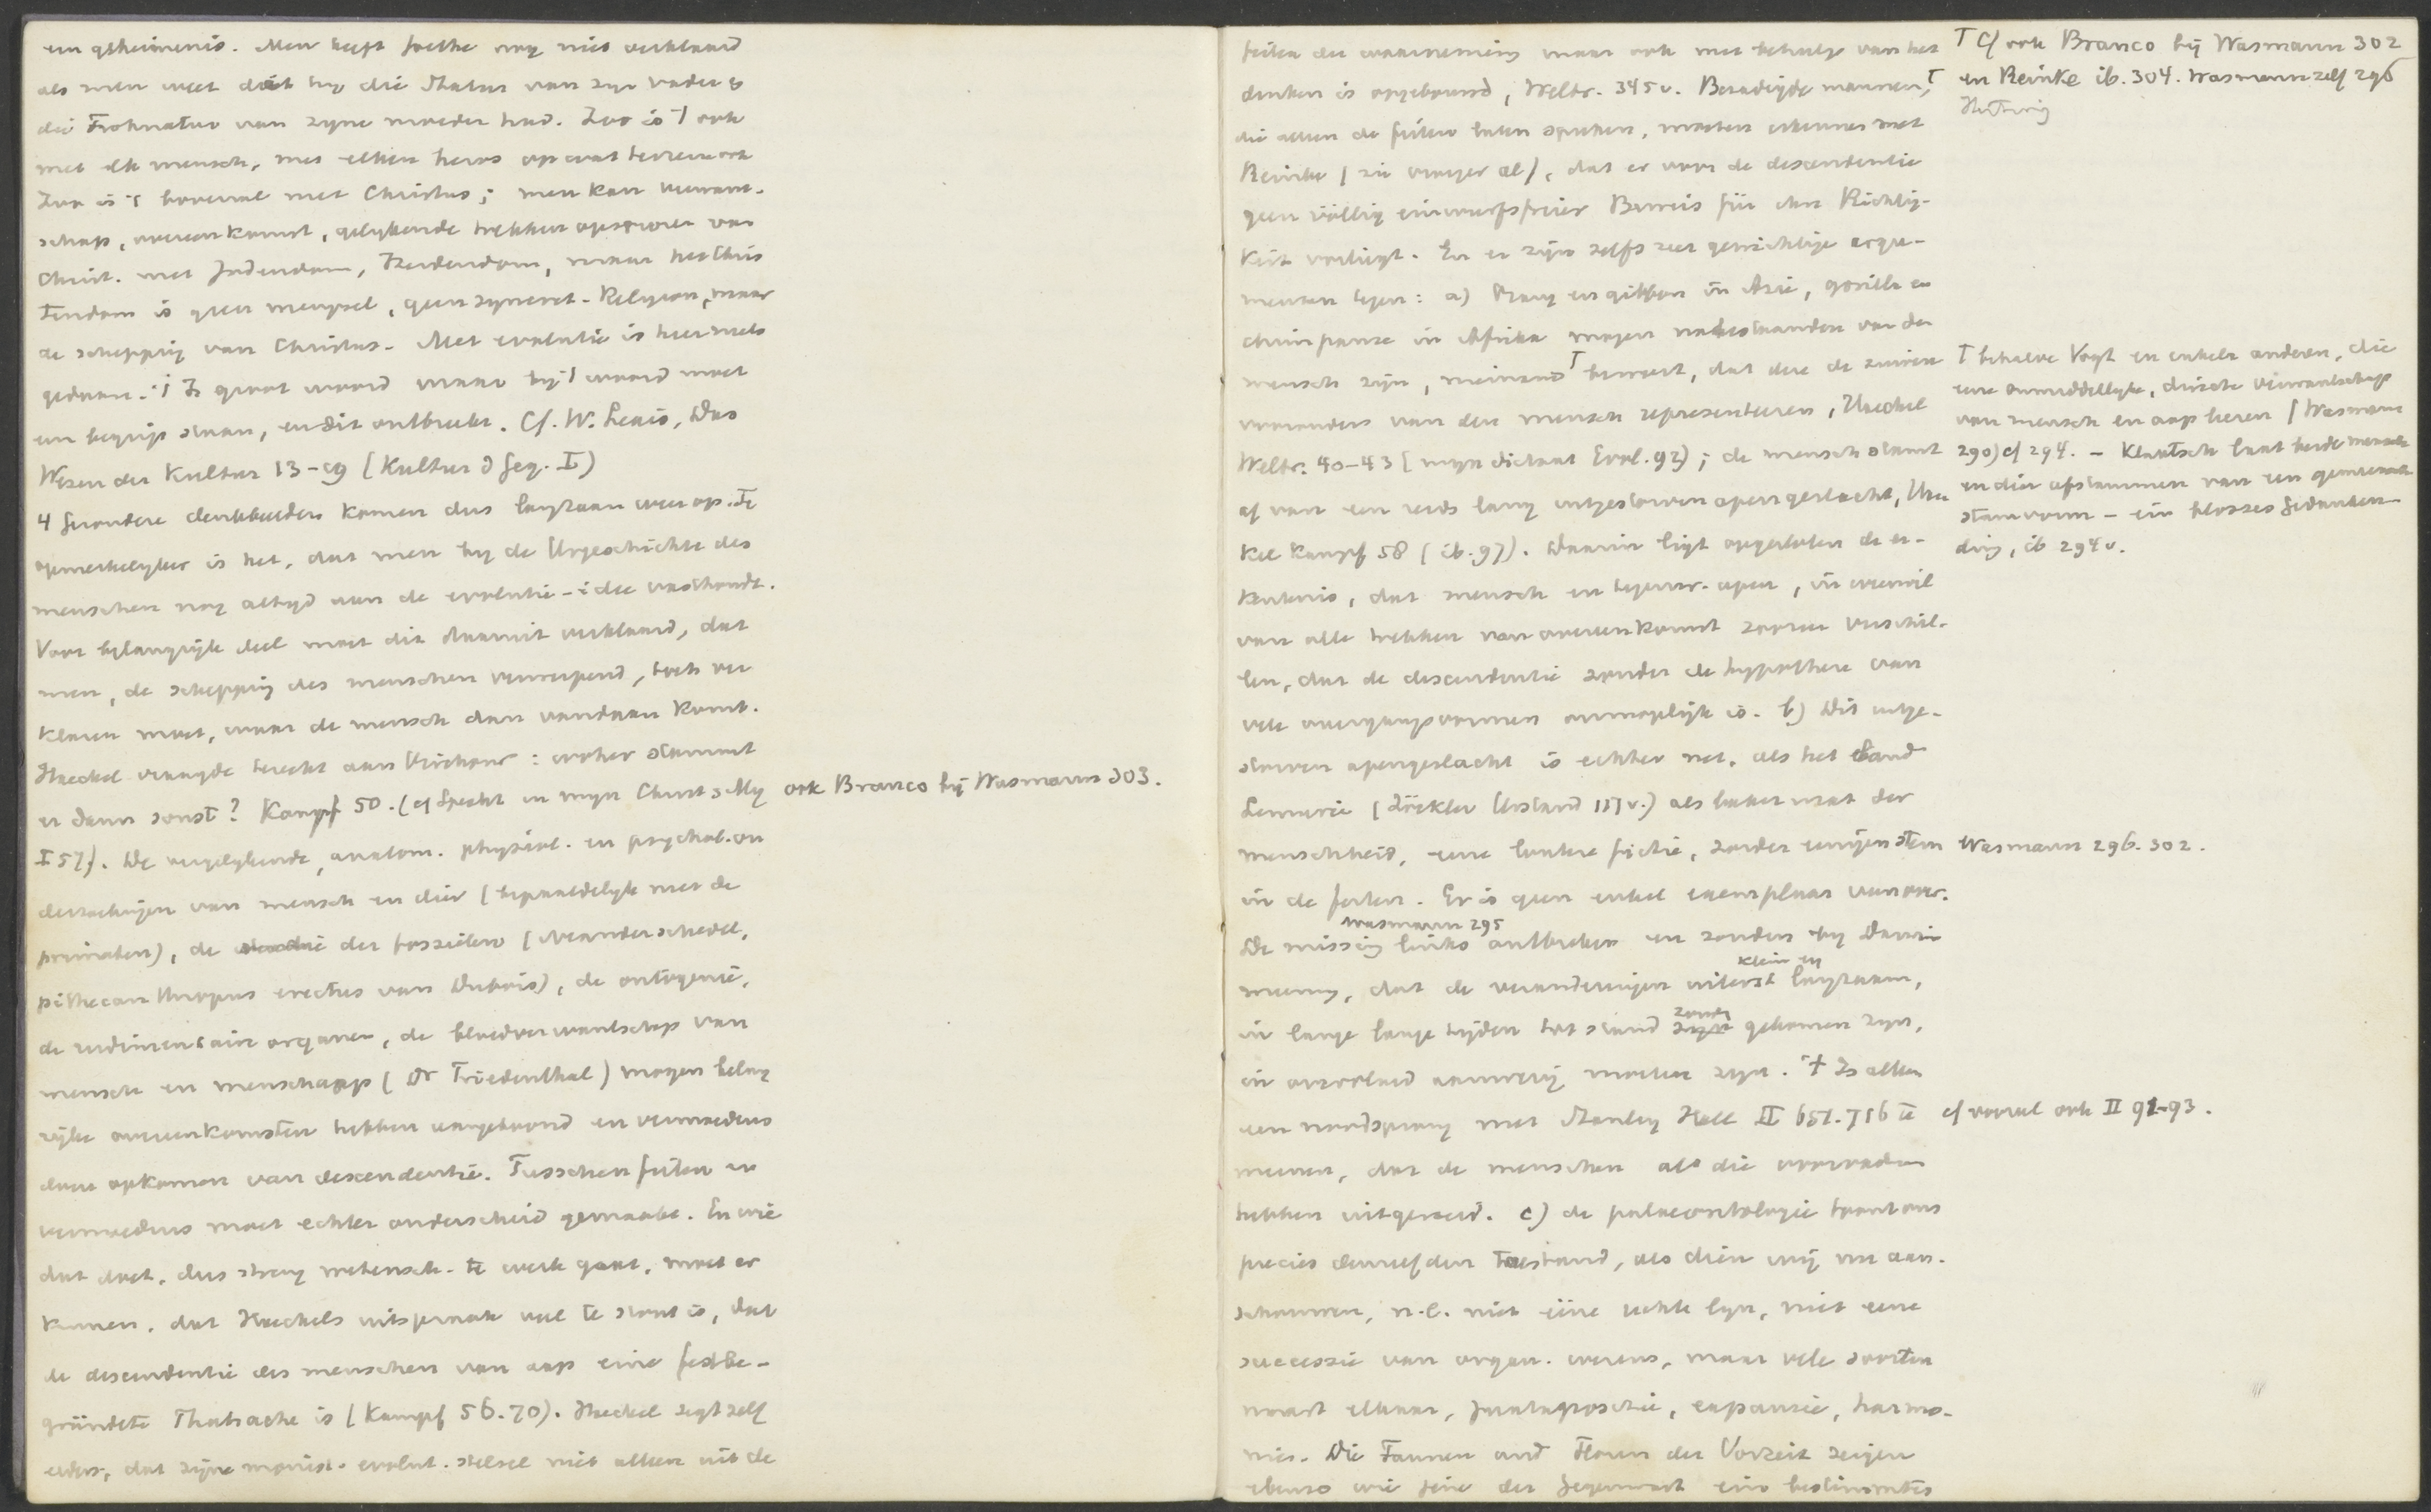 een geheimenis. Men heeft Goethe nog niet verklaard
als men weet dat hij die Statur van zijn vader &
die Frohnatur van zijne moeder had. Zoo is 't ook
met elk mensch, met elken heros op wat terrein ook
Zoo is 't bovenal met Christus; men kan verwant-
schap, overeenkomst, gelijkende trekken opsporen van
Christ. met Jodendom, Heidendom, maar het Chris
tendom is geen mengsel, geen syncret. Religion, maar
de schepping van Christus. Met evolutie is hier niets
gedaan. 't Is groot woord maar bij 't woord moet
een begrip staan, en dit ontbreekt. Cf. W. Lexis, Das
Wesen der Kultur 13-19 (Kultur d Geg. I)
4 Gezondere denkbeelden komen dus langzaam weer op. Te
opmerkelijker is het, dat men bij de Urgeschichte des
menschen nog altijd aan de evolutie-idee vasthoudt.
Voor belangrijk deel moet dit daaruit verklaard, dat
men, de schepping des menschen verwerpend, toch ver
klaren moet, waar de mensch dan vandaan komt.
Haeckel vraagde terecht aan Virchow: woher stammt
er denn sonst? Kampf 50. (cf Specht in mijn Christ. ook Branco bij Wasmann 303.
I 57). De vergelijkende, anatom. physiol. en psychol. on
derzoekingen van mensch en dier (bepaaldelijk met de
primaten), de der fossielen (Neanderschedel,
pithecanthropus erectus van Dubois), de ontogenie,
de rudimentaire organen, de bloedverwantschap van
mensch en menschaap (Dr Friedenthal) mogen belang
rijke overeenkomsten hebben aangetoond en vermoedens
doen opkomen van descendentie. Tusschen feiten en
vermoedens moet echter onderscheid gemaakt. En wie
dat doet, dus streng wetensch. te werk gaat, moet er
kennen, dat Haeckels uitspraak veel te stout is, dat
de descendentie des menschen van aap eine festbe-
gründete Thatsache is (Kampf 56.70). Haeckel zegt zelf
elders, dat zijne monist. evolut. stelsel niet alleen uit de
feiten der waarneming maar ook met behulp van het
denken is opgebouwd, Weltr. 345v. Bezadigde mannen,T
die alleen de feiten laten spreken, moeten erkennen met
Reinke (zie vroeger al), dat er voor de descendentie
geen völlig einwurfsfreier Beweis für ihre Richtig-
keit vorliegt. En er zijn zelfs zeer gewichtige argu-
menten tegen: a) Orang en gibbon in Azie, gorilla en
chimpanze in Afrika mogen nabestaanden van den
mensch zijn, niemand T beweert, dat deze de zuivere
voorouders van den mensch representeeren, Haeckel
Weltr. 40-43 (mijn dictaat Evol. 92); de mensch stamt
af van een reeds lang uitgestorven apengeslacht, Haec
kel Kampf 58 (ib. 97). Daarin ligt opgesloten de er-
kentenis, dat mensch en tegenw. apen, in weerwil
van alle trekken van overeenkomst zoozeer verschil-
len, dat de descendentie zonder de hypothese van
vele overgangsvormen onmogelijk is. b) Dit uitge-
storven apengeslacht is echter net, als het eiland
Lemurie (Zöckler Urstand 117v.) als bakermat der
menschheid, eene loutere fictie, zonder eenigen stem Wasmann 296. 302.
in de feiten. Er is geen enkel exemplaar van over.
Wasmann 295
De missing links ontbreken en zouden bij Darwin
klein en
meening, dat de veranderingen uiterst langzaam,
zouden
in lange lange tijden tot stand gekomen zijn,
in overvloed aanwezig moeten zijn. 't Is alleen
een noodsprong met Stanley Hall II 651.716 te cf vooral ook II 91-93.
meenen, dat de menschen als die voorvaders
hebben uitgeroeid. c) de palaeontologie toont ons
precies denzelfden toestand, als dien wij nu aan-
schouwen, n.l. niet ééne rechte lijn, niet eene
successie van organ. wezens, maar vele soorten
naast elkaar, juxtapositie, expansie, harmo-
nie. Die Faunen und Floren der Vorzeit zeigen
ebenso wie jene der Gegenwart ein bestimmtes
T Cf ook Branco bij Wasmann 302
en Reinke ib. 304. Wasmann zelf 296
Hertwig
T behalve Vogt en enkele anderen, die
eene onmiddellijke, directe verwantschap
van mensch en aap leeren (Wasmann
290) cf 294. - Klaatsch laat beide mensch
en dier afstammen van een gemeensch
stamvorm - ein blosses Gedanken
ding, ib 294v.